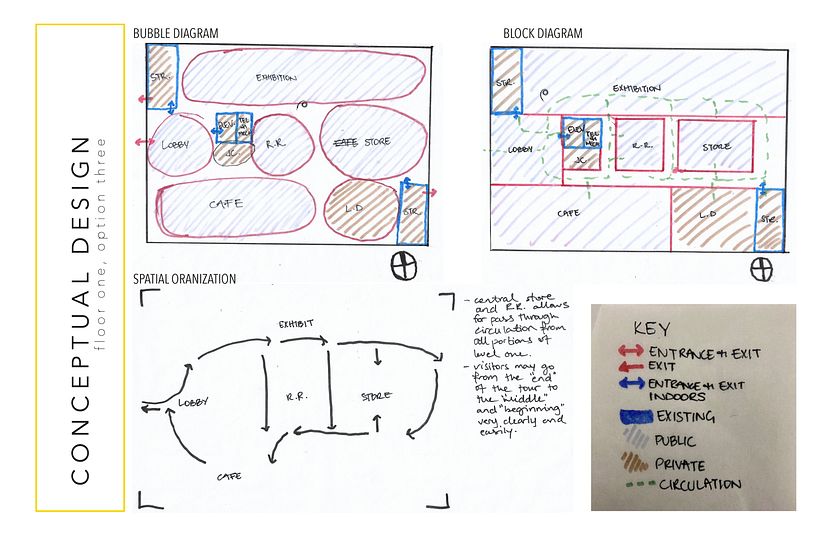 CONCEPTUAL DESIGN
floor one, option three
BUBBLE DIAGRAM
STR.
EXHIBITION
LOBBY
ELEV.
TEL
+
MECH
JC.
R.R.
CAFE STORE
CAFE
L.D
STR.
BLOCK DIAGRAM
STR.
EXHIBITION
LOBBY
ELEV.
TEL
+
MECH
JC.
R.R.
STORE
CAFE
L.D
STR.
SPATIAL ORANIZATION
EXHIBIT
LOBBY
R.R.
STORE
CAFE
- central store
and R.R. allows
for pass through
circulation from
all portions of
level one.
- visitors may go
from the "end"
of the tour to
the "middle"
and "beginning"
very clearly and
easily.
KEY
ENTRANCE + EXIT
EXIT
ENTRANCE + EXIT
INDOORS
EXISTING
PUBLIC
PRIVATE
CIRCULATION